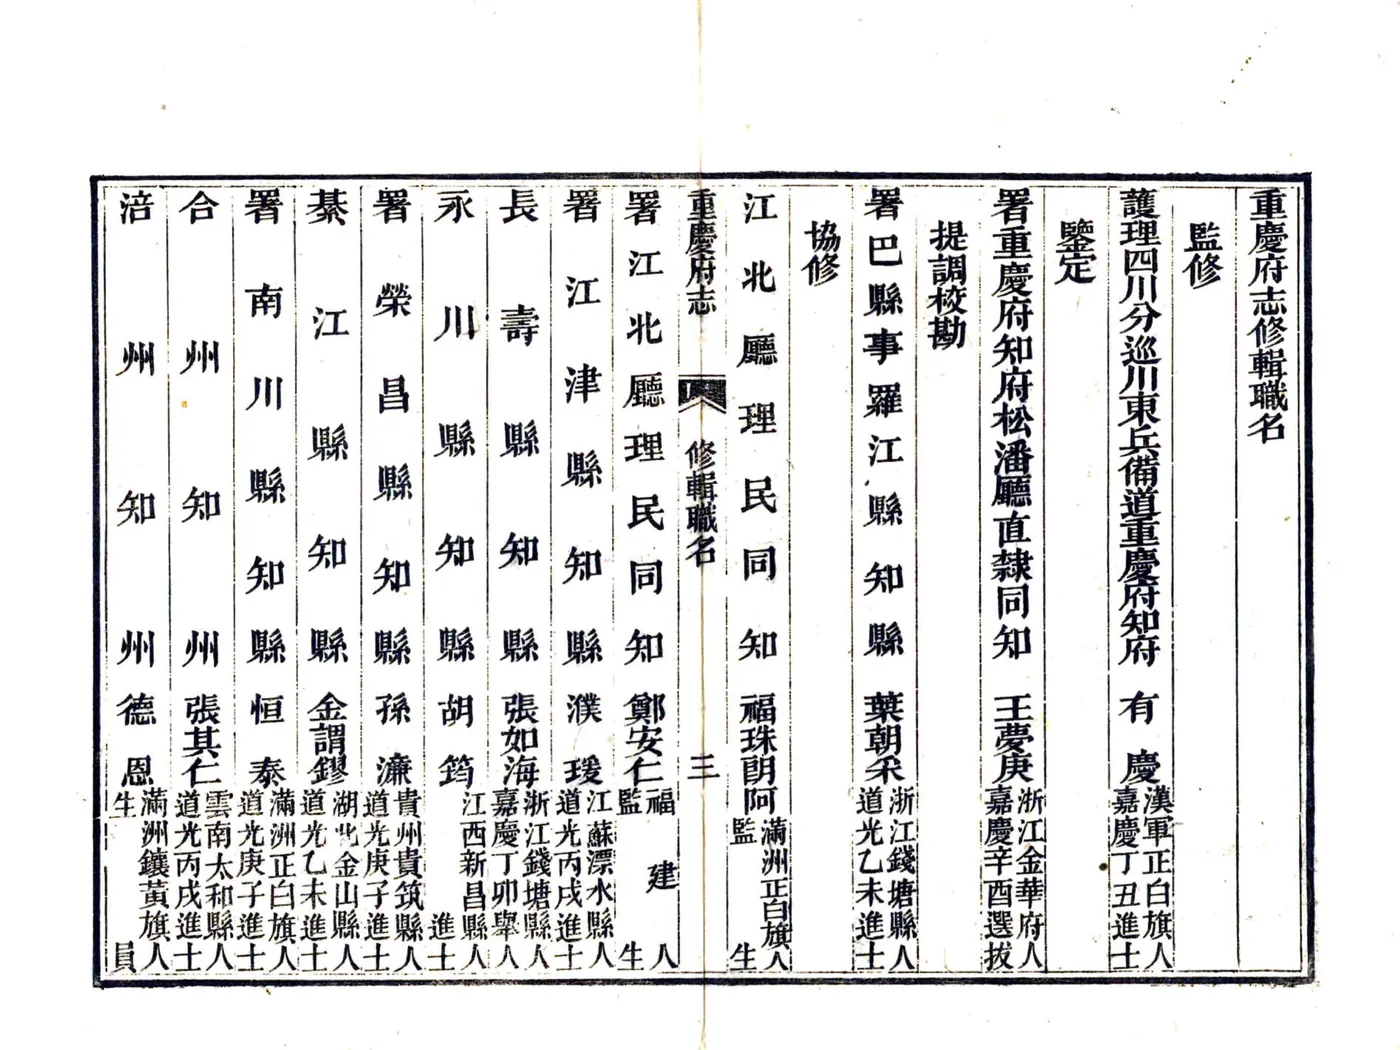 重慶府志修輯職名
監修
護理四川分巡川東兵備道重慶府知府 有慶 漢軍正白旗人 嘉慶丁丑進士
鑒定
署重慶府知府松潘廳直隸同知 王夢庚 浙江金華府人 嘉慶辛酉選拔
提調校勘
署巴縣事羅江縣知縣 葉朝采 浙江錢塘縣人 道光乙未進士
協修
江北廳理民同知 福珠朗阿 滿洲正白旗人 監生
重慶府志 修輯職名 三
署江北廳理民同知 鄭安仁 福建人 監生
署江津縣知縣 濮瑗 江蘇溧水縣人 道光丙戌進士
長壽縣知縣 張如海 浙江錢塘縣人 嘉慶丁卯舉人
永川縣知縣 胡筠 江西新昌縣人 進士
署榮昌縣知縣 孫濂 貴州貴筑縣人 道光庚子進士
綦江縣知縣 金謂鏐 湖北金山縣人 道光乙未進士
署南川縣知縣 恒泰 滿洲正白旗人 道光庚子進士
合州知州 張其仁 雲南太和縣人 道光丙戌進士
涪州知州 德恩 滿洲鑲黃旗人 生員